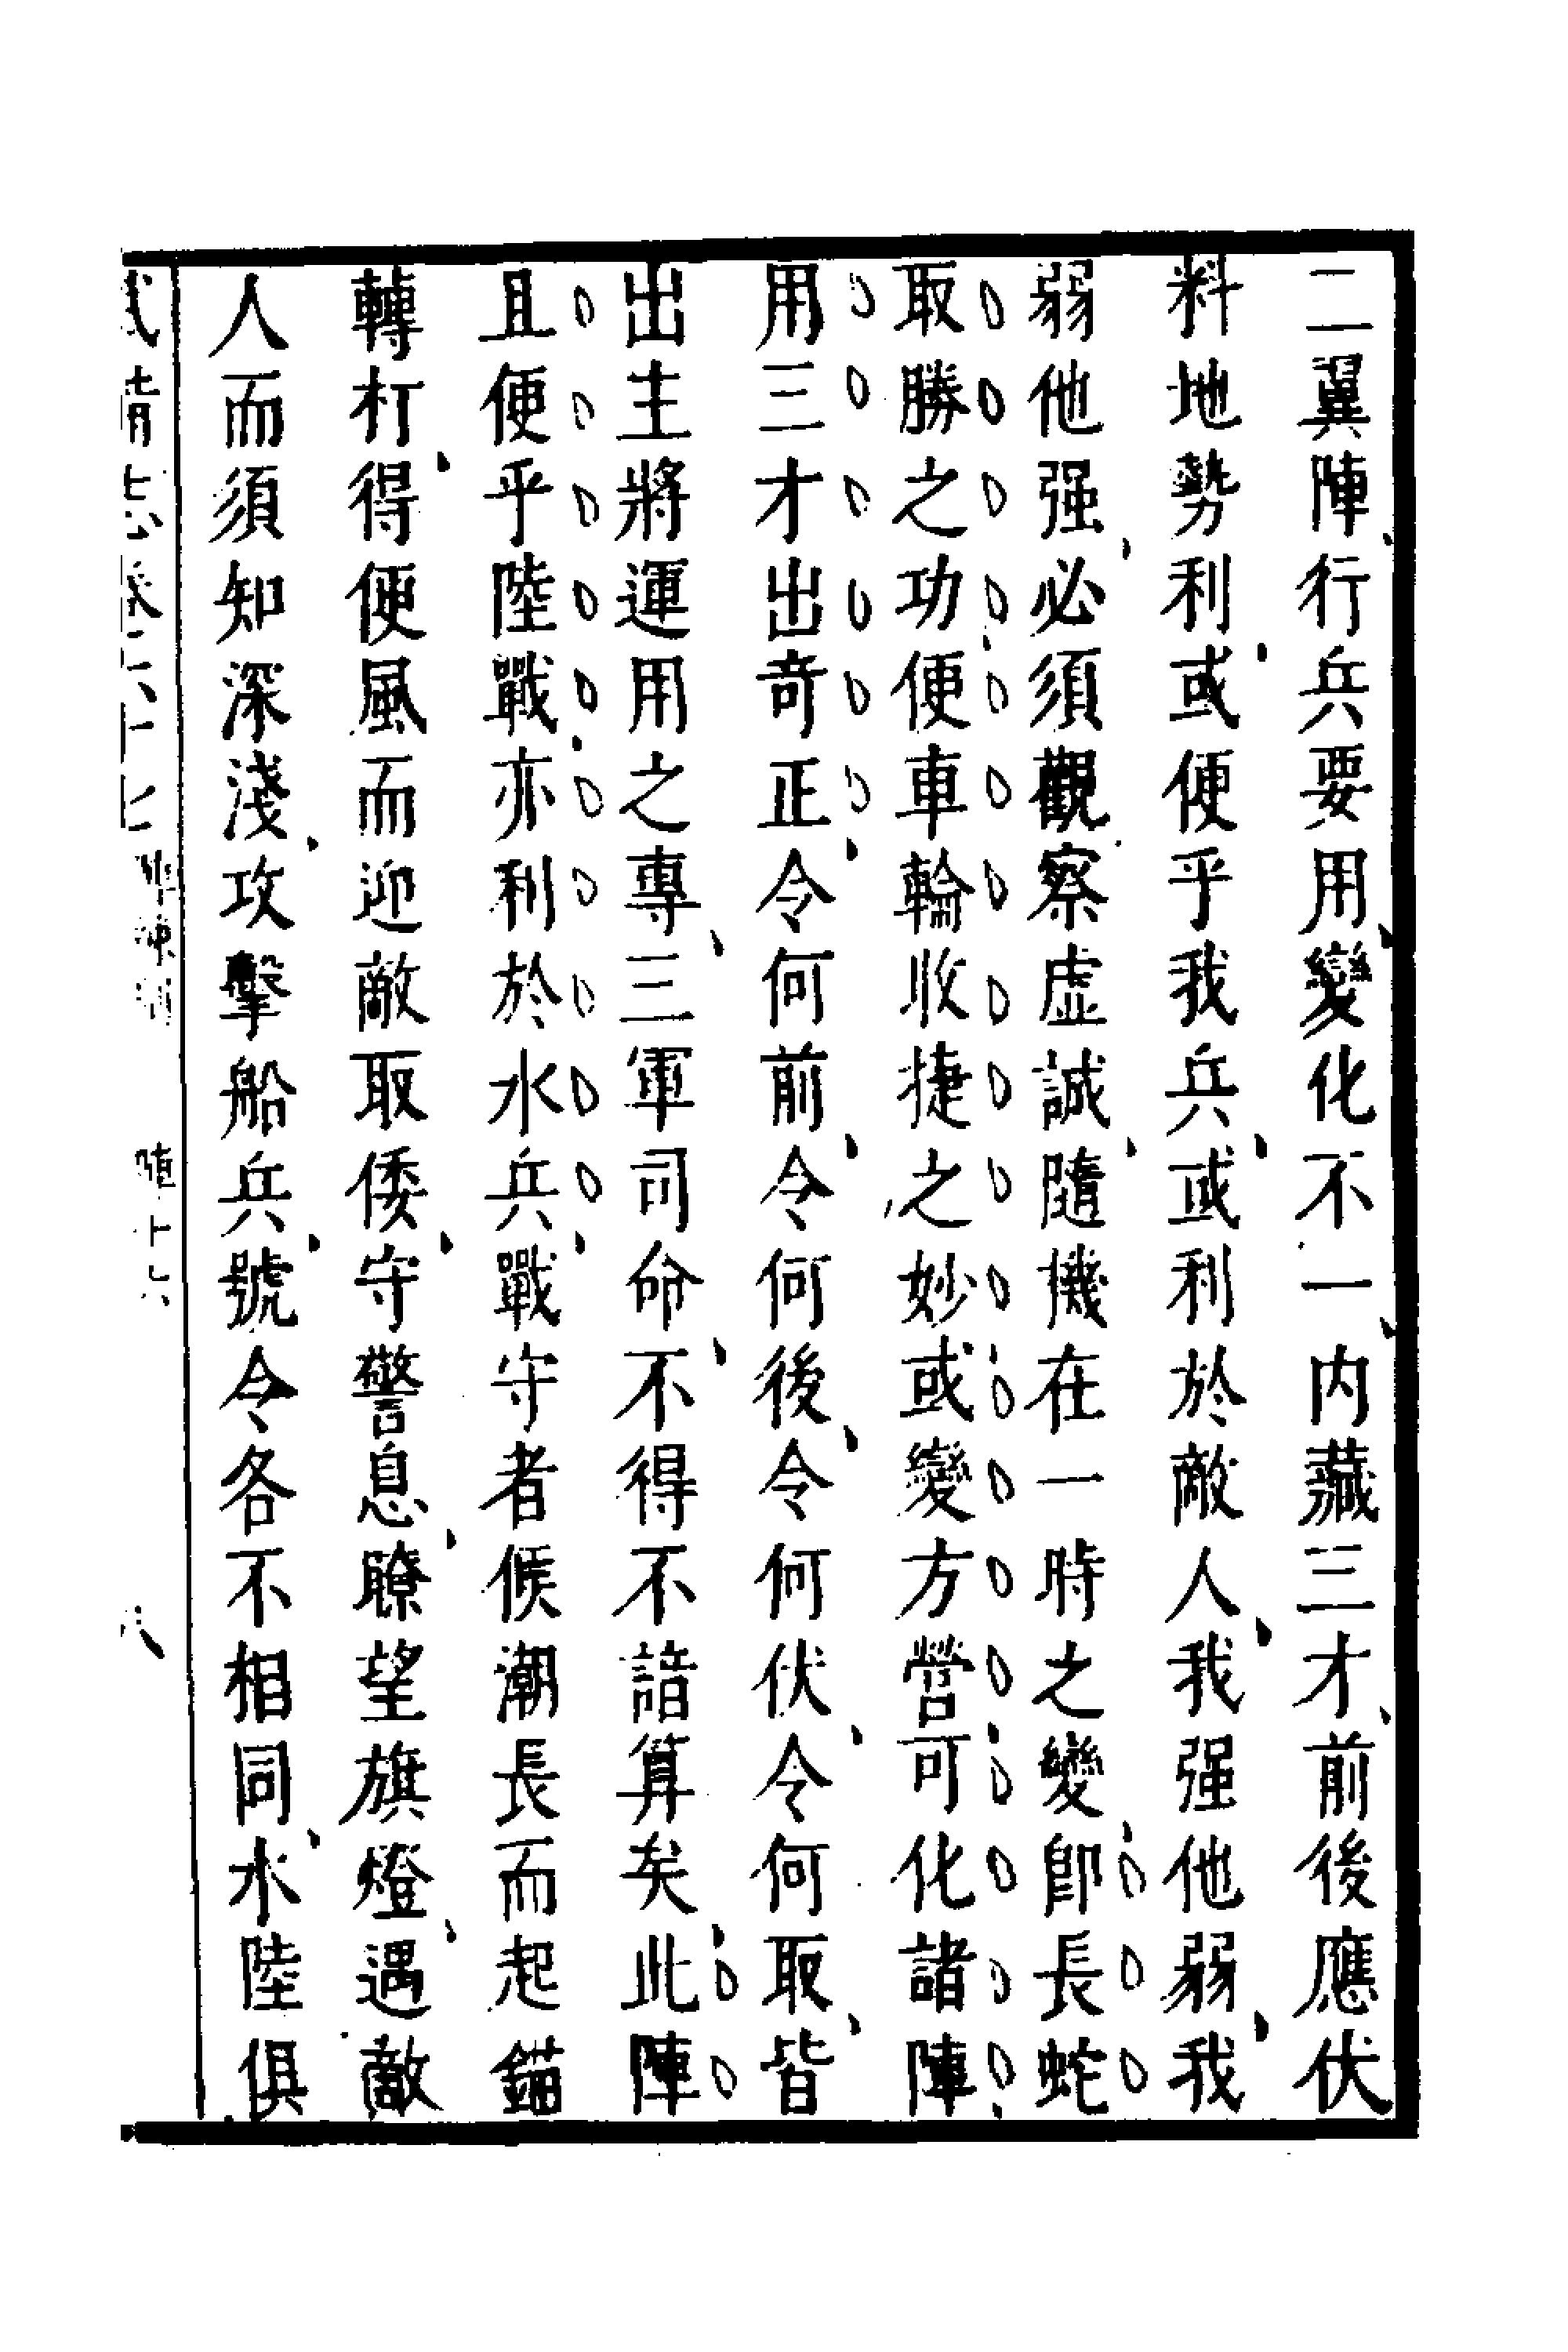 二翼陣行兵要用變化不一內藏三才前後應伏
料地勢利或便乎我兵或利於敵人我强他弱我
弱他强必須觀察虛誠隨機在一時之變卽長蛇
取勝之功便車輪收捷之妙或變方營可化諸陣
用三才出奇正令何前令何後令何伏令何取皆
出主將運用之專三軍司命不得不諳算矣此陣
且便乎陸戰亦利於水兵戰守者候潮長而起錨
轉杠得便風而迎敵取倭守警息瞭望旗燈遇敵
人而須知深淺攻擊船兵號令各不相同水陸俱
陣十六
八